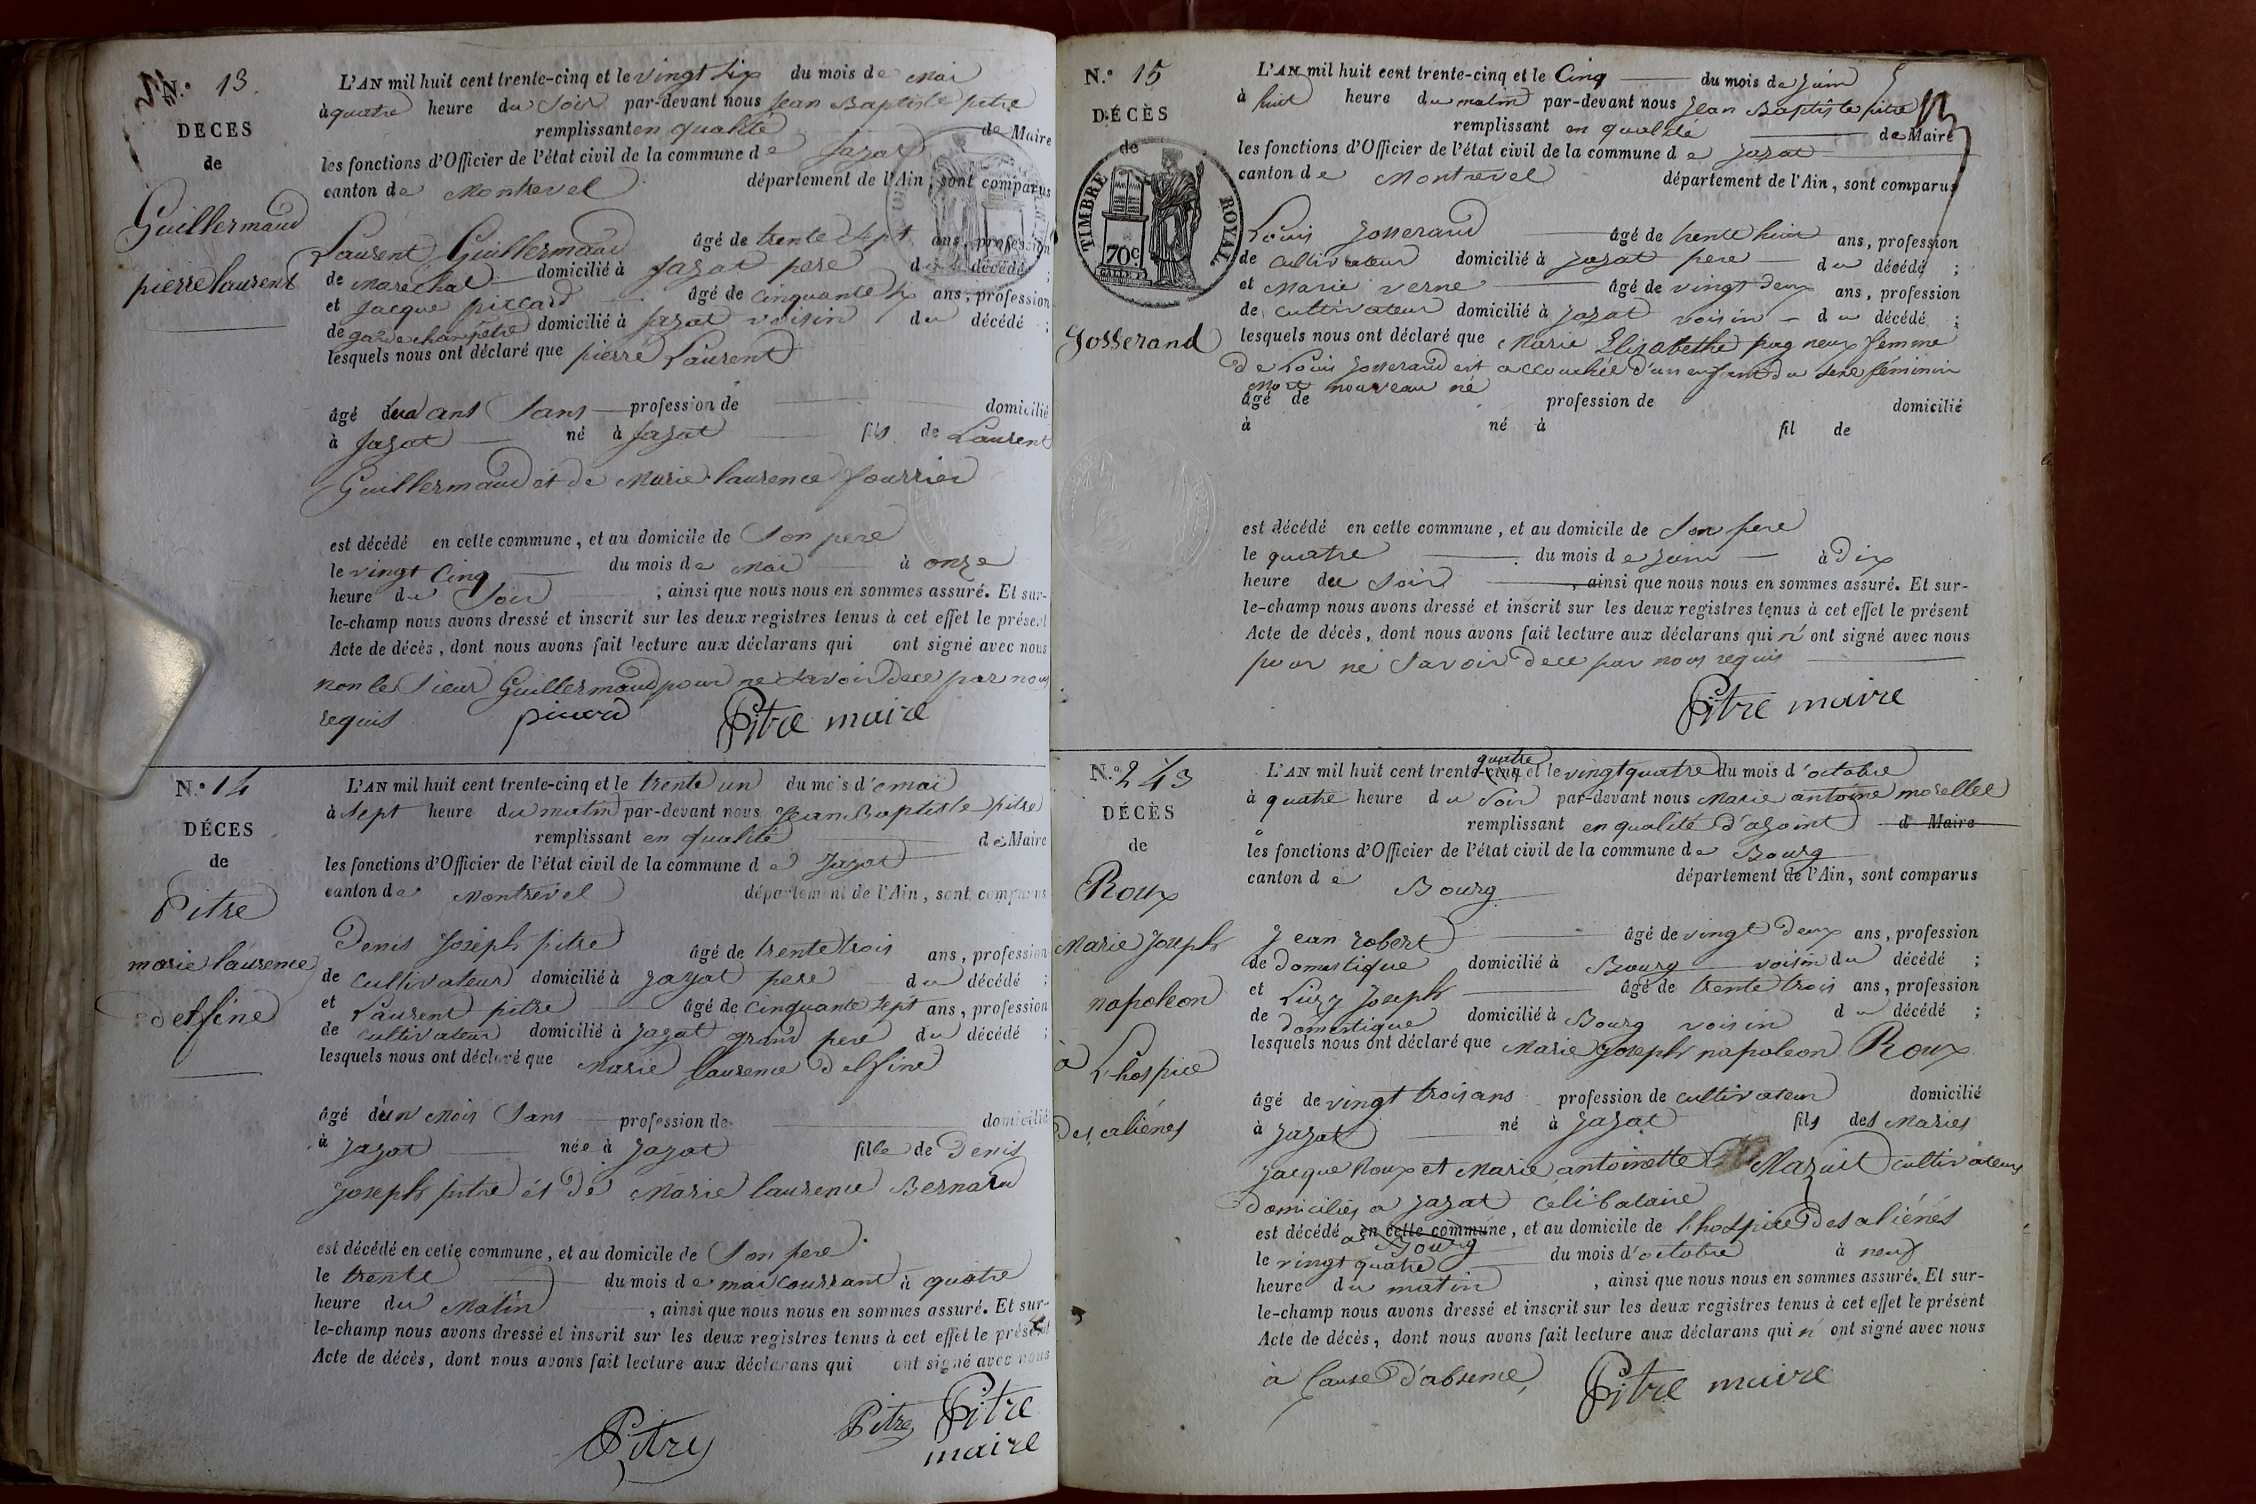 N.° 13.
DECES
de
Guillermaud
pierre laurent
L'AN mil huit cent trente-cinq et le vingt six du mois de mai
à quatre heure du soir par-devant nous Jean Baptiste pitre
remplissant en qualité de Maire
les fonctions d'Officier de l'état civil de la commune de Jazat
canton de Montrevel département de l'Ain, sont comparus
Laurent Guillermaud âgé de trente sept ans, profession
de marechal domicilié à Jazat pere du décédé ;
et Jacque piccard âgé de cinquante six ans, profession
de garde champêtre domicilié à Jazat voisin du décédé ;
lesquels nous ont déclaré que pierre Laurent
âgé ans sans profession de domicilié
à Jazat né à Jazat fils de Laurent
Guillermaud et de Marie laurence fourrier
est décédé en cette commune, et au domicile de son pere
le vingt cinq du mois de mai à onze
heure du soir ; ainsi que nous nous en sommes assuré. Et sur-
le-champ nous avons dressé et inscrit sur les deux registres tenus à cet effet le présent
Acte de décès, dont nous avons fait lecture aux déclarans qui ont signé avec nous
non le sieur Guillermaud pour ne savoir dece par nous
requis picard Pitre maire
N.° 14
DÉCES
de
Pitre
marie laurence
delfine
L'AN mil huit cent trente-cinq et le trente un du mois d'e mai
à sept heure du matin par-devant nous Jean Baptiste pitre
remplissant en qualité de Maire
les fonctions d'Officier de l'état civil de la commune de Jazat
canton de Montrevel département de l'Ain, sont comparus
Denis Joseph pitre âgé de trente trois ans, profession
de cultivateur domicilié à Jazat pere du décédé ;
et Laurent pitre âgé de cinquante sept ans, profession
de cultivateur domicilié à Jazat grand pere du décédé ;
lesquels nous ont déclaré que Marie laurence delfine
âgé d'un mois sans profession de domicilié
à Jazat née à Jazat fille de Denis
Joseph pitre et de Marie laurence Bernard
est décédé en cette commune, et au domicile de son pere
le trente du mois de mai courrant à quatre
heure du matin , ainsi que nous nous en sommes assuré. Et sur-
le-champ nous avons dressé et inscrit sur les deux registres tenus à cet effet le présent
Acte de décès, dont nous avons fait lecture aux déclarans qui ont signé avec nous
Pitre Pitre Pitre
maire
N.° 15
DÉCÈS
de
TIMBRE ROYAL
70c
Josserand
L'AN mil huit cent trente-cinq et le Cinq du mois de Juin
à huit heure du matin par-devant nous Jean Baptiste pitre
remplissant en qualité de Maire
les fonctions d'Officier de l'état civil de la commune de Jazat
canton de Montrevel département de l'Ain, sont comparus
Louis Josserand âgé de trente huit ans, profession
de cultivateur domicilié à Jazat pere du décédé ;
et Marie verne âgé de vingt deux ans, profession
de cultivateur domicilié à Jazat voisin du décédé ;
lesquels nous ont déclaré que Marie Elisabethe pagneux femme
de Louis Josserand est accouchée d'un enfant du sexe féminin
mort nouveau né
âgé de profession de domicilié
à né à fil de
est décédé en cette commune, et au domicile de son pere
le quatre du mois de Juin à dix
heure du soir , ainsi que nous nous en sommes assuré. Et sur-
le-champ nous avons dressé et inscrit sur les deux registres tenus à cet effet le présent
Acte de décès, dont nous avons fait lecture aux déclarans qui n'ont signé avec nous
pour ne savoir dece par nous requis
Pitre maire
N.° 243
DÉCÈS
de
Roux
Marie Joseph
napoleon
à L'hospice
des aliénés
L'AN mil huit cent trente-cinq quatre et le vingt quatre du mois d'octobre
à quatre heure du soir par-devant nous Marie antoine morellet
remplissant en qualité d'ajoint d' Maire
les fonctions d'Officier de l'état civil de la commune de Bourg
canton de Bourg département de l'Ain, sont comparus
Jean robert âgé de vingt deux ans, profession
de domestique domicilié à Bourg voisin du décédé ;
et Joseph âgé de trente trois ans, profession
de domestique domicilié à Bourg voisin du décédé ;
lesquels nous ont déclaré que Marie Joseph napoleon Roux
âgé de vingt trois ans profession de cultivateur domicilié
à Jazat né à Jazat fils des Maries
Jacque Roux et Marie antoinette Mazuit cultivateurs
domiciliés a Jazat celibataire
est décédé en cette commune, et au domicile de l'hospice des aliénés
a Bourg
le vingt quatre du mois d'octobre à neuf
heure du matin , ainsi que nous nous en sommes assuré. Et sur-
le-champ nous avons dressé et inscrit sur les deux registres tenus à cet effet le présent
Acte de décès, dont nous avons fait lecture aux déclarans qui n'ont signé avec nous
à cause d'absence, Pitre maire